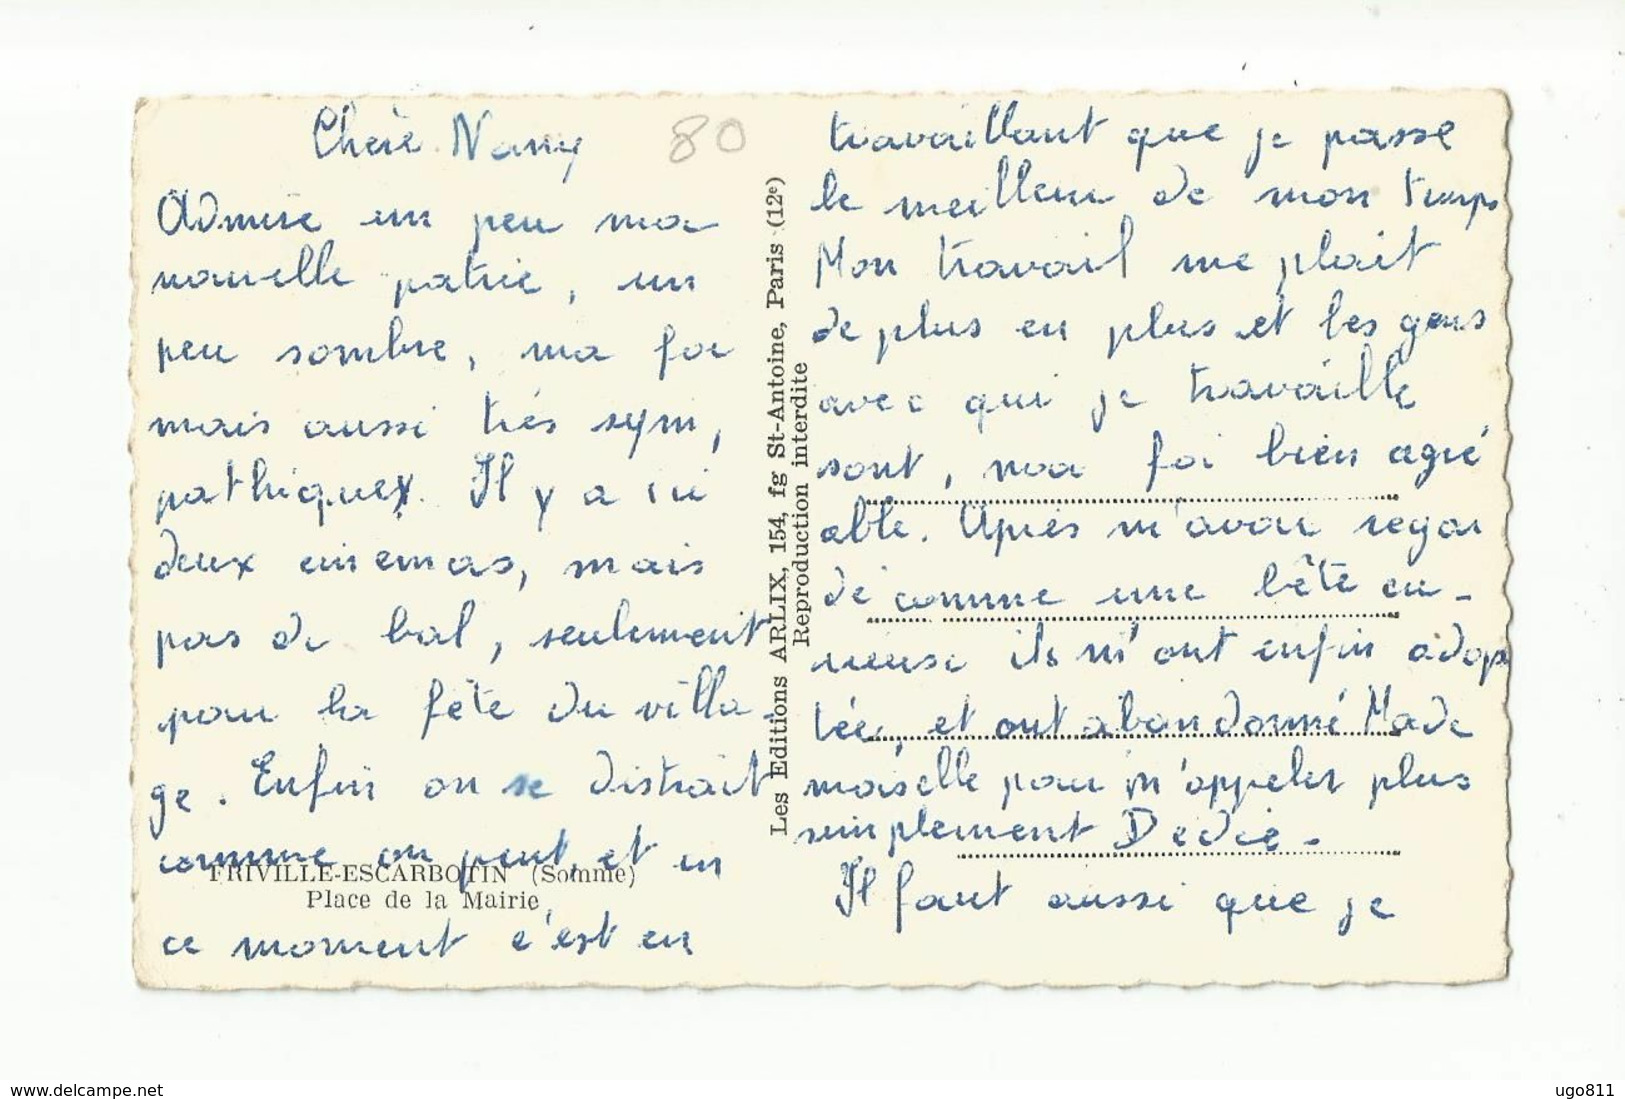 Chère Nany
80
Admire un peu ma
nouvelle patrie, un
peu sombre, ma foi
mais aussi très sym,
pathique. Il y a ici
deux cinemas, mais
pas de bal, seulement
pour la fête du villa-
ge. Enfin on se distrait
comme on peut, et en
ce moment c'est en
FRIVILLE-ESCARBOTIN (Somme)
Place de la Mairie
Les Editions ARLIX, 154, fg St-Antoine, Paris (12e)
Reproduction interdite
travaillant que je passe
le meilleur de mon temps
Mon travail me plait
de plus en plus et les gens
avec qui je travaille
sont, ma foi bien agré
able. Après m'avoir regar
dé comme une bête cu-
rieuse ils m'ont enfin adop
tée, et ont abandonné Made
moiselle pour m'appeler plus
simplement Dedie.
Il faut aussi que je
www.delcampe.net
ugo811